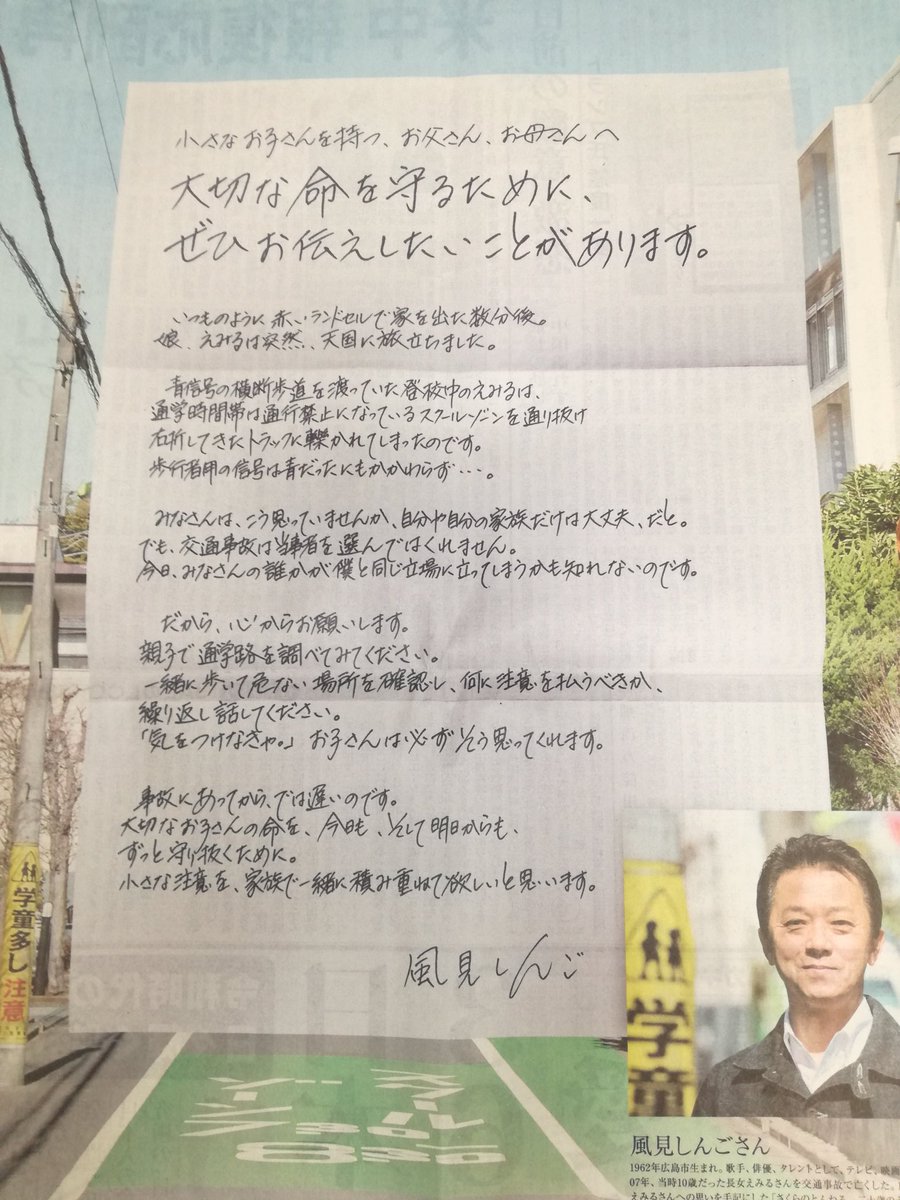 小さなお子さんを持つ、お父さん、お母さんへ
大切な命を守るために、
ぜひお伝えしたいことがあります。
いつものように赤いランドセルで家を出た数分後。
娘、えみるは突然、天国に旅立ちました。
青信号の横断歩道を渡っていた登校中のえみるは、
通学時間帯は通行禁止になっているスクールゾーンを通り抜け
右折してきたトラックに轢かれてしまったのです。
歩行者用の信号は青だったにもかかわらず…。
みなさんは、こう思っていませんか、自分や自分の家族だけは大丈夫、だと。
でも、交通事故は当事者を選んではくれません。
今日、みなさんの誰かが僕と同じ立場に立ってしまうかも知れないのです。
だから、心からお願いします。
親子で通学路を調べてみてください。
一緒に歩いて危ない場所を確認し、何に注意を払うべきか、
繰り返し話してください。
「気をつけなきゃ。」お子さんは必ずそう思ってくれます。
事故にあってから、では遅いのです。
大切なお子さんの命を、今日も、そして明日からも、
ずっと守り抜くために。
小さな注意を、家族で一緒に積み重ねて欲しいと思います。
風見しんご
学童多し
注意
学童
風見しんごさん
1962年広島市生まれ。歌手、俳優、タレントとして、テレビ、映画
07年、当時10歳だった長女えみるさんを交通事故で亡くした。
えみるさんへの思いを手記にした「さくらのとんねる 二十歳の